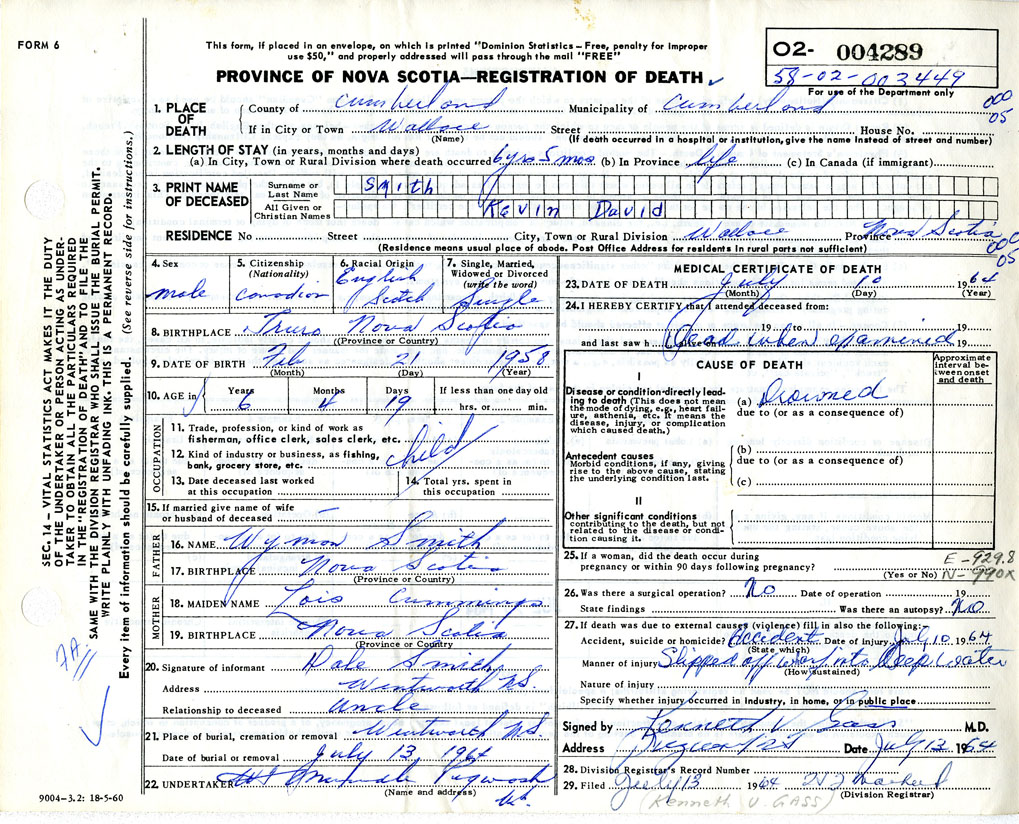 FORM 6
This form, if placed in an envelope, on which is printed "Dominion Statistics – Free, penalty for improper
use $50," and properly addressed will pass through the mail "FREE"
PROVINCE OF NOVA SCOTIA—REGISTRATION OF DEATH
O2- 004289
58-02-003449
For use of the Department only
000
05
1. PLACE OF DEATH
County of Cumberland Municipality of Cumberland
If in City or Town Wallace Street House No.
(Name) (If death occurred in a hospital or institution, give the name instead of street and number)
2. LENGTH OF STAY (in years, months and days)
(a) In City, Town or Rural Division where death occurred 6 yrs 5 mos (b) In Province life (c) In Canada (if immigrant)
3. PRINT NAME OF DECEASED
Surname or Last Name Smith
All Given or Christian Names Kevin David
RESIDENCE No Street City, Town or Rural Division Wallace Province Nova Scotia
(Residence means usual place of abode. Post Office Address for residents in rural parts not sufficient)
000
05
4. Sex male
5. Citizenship (Nationality) Canadian
6. Racial Origin English Scotch
7. Single, Married, Widowed or Divorced (write the word) Single
8. BIRTHPLACE Truro Nova Scotia
(Province or Country)
9. DATE OF BIRTH Feb 21 1958
(Month) (Day) (Year)
10. AGE in Years 6 Months 4 Days 19 If less than one day old hrs. or min.
OCCUPATION
11. Trade, profession, or kind of work as fisherman, office clerk, sales clerk, etc.
12. Kind of industry or business, as fishing, bank, grocery store, etc.
child
13. Date deceased last worked at this occupation
14. Total yrs. spent in this occupation
15. If married give name of wife or husband of deceased –
FATHER
16. NAME Wyman Smith
17. BIRTHPLACE Nova Scotia
(Province or Country)
MOTHER
18. MAIDEN NAME Lois Cummings
19. BIRTHPLACE Nova Scotia
(Province or Country)
20. Signature of informant Dale Smith
Address Wentworth N.S.
Relationship to deceased Uncle
21. Place of burial, cremation or removal Wentworth N.S.
Date of burial or removal July 13 1964
22. UNDERTAKER Pugwash
(Name and address)
9004-3.2: 18-5-60
MEDICAL CERTIFICATE OF DEATH
23. DATE OF DEATH July 10 1964
(Month) (Day) (Year)
24. I HEREBY CERTIFY that I attended deceased from:
19 to 19
and last saw h alive on 19
Dead when examined
CAUSE OF DEATH
Approximate interval between onset and death
I
Disease or condition directly leading to death (This does not mean the mode of dying, e.g., heart failure, asthenia, etc. It means the disease, injury, or complication which caused death.)
(a) Drowned
due to (or as a consequence of)
Antecedent causes
Morbid conditions, if any, giving rise to the above cause, stating the underlying condition last.
(b)
due to (or as a consequence of)
(c)
II
Other significant conditions
contributing to the death, but not related to the disease or condition causing it.
25. If a woman, did the death occur during pregnancy or within 90 days following pregnancy?
(Yes or No)
E-929.8
N-990X
26. Was there a surgical operation? No Date of operation 19
State findings Was there an autopsy? No
27. If death was due to external causes (violence) fill in also the following:
Accident, suicide or homicide? Accident Date of injury July 10 1964
(State which)
Manner of injury Slipped off wharf into deep water
(How sustained)
Nature of injury
Specify whether injury occurred in industry, in home, or in public place
Signed by Kenneth V. Gass M.D.
Address Date July 13 1964
28. Division Registrar's Record Number
29. Filed July 13 1964
(Division Registrar)
(Kenneth V. GASS)
SEC. 14 – VITAL STATISTICS ACT MAKES IT THE DUTY
OF THE UNDERTAKER OR PERSON ACTING AS UNDER-
TAKER TO OBTAIN ALL THE PARTICULARS REQUIRED
IN THE "REGISTRATION OF DEATH" AND TO FILE THE
SAME WITH THE DIVISION REGISTRAR WHO SHALL ISSUE THE BURIAL PERMIT.
WRITE PLAINLY WITH UNFADING INK. THIS IS A PERMANENT RECORD.
Every item of information should be carefully supplied. (See reverse side for instructions.)